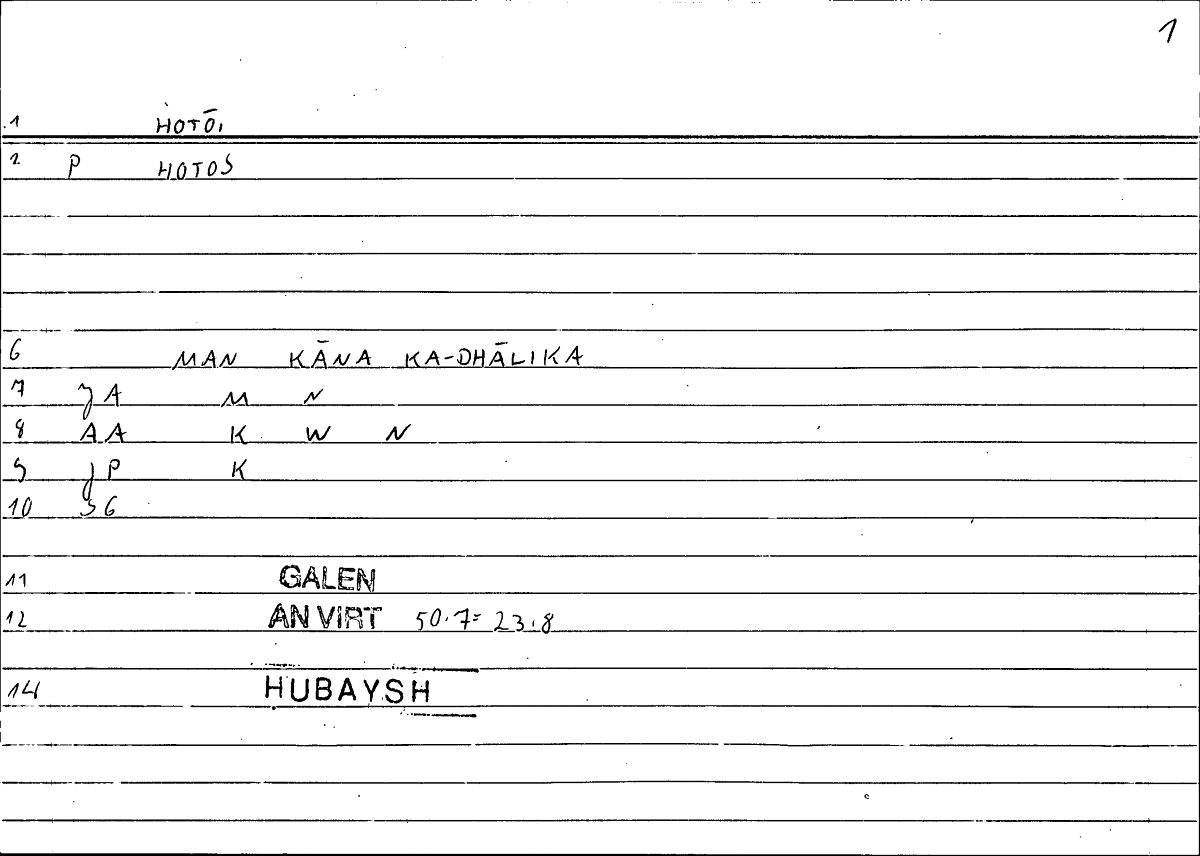 1
1 HOTŌI
2 P HOTOS
6 MAN KĀNA KA-DHĀLIKA
7 JA M N
8 AA K W N
9 JP K
10 SG
11 GALEN
12 AN VIRT 50.7= 23.8
14 HUBAYSH